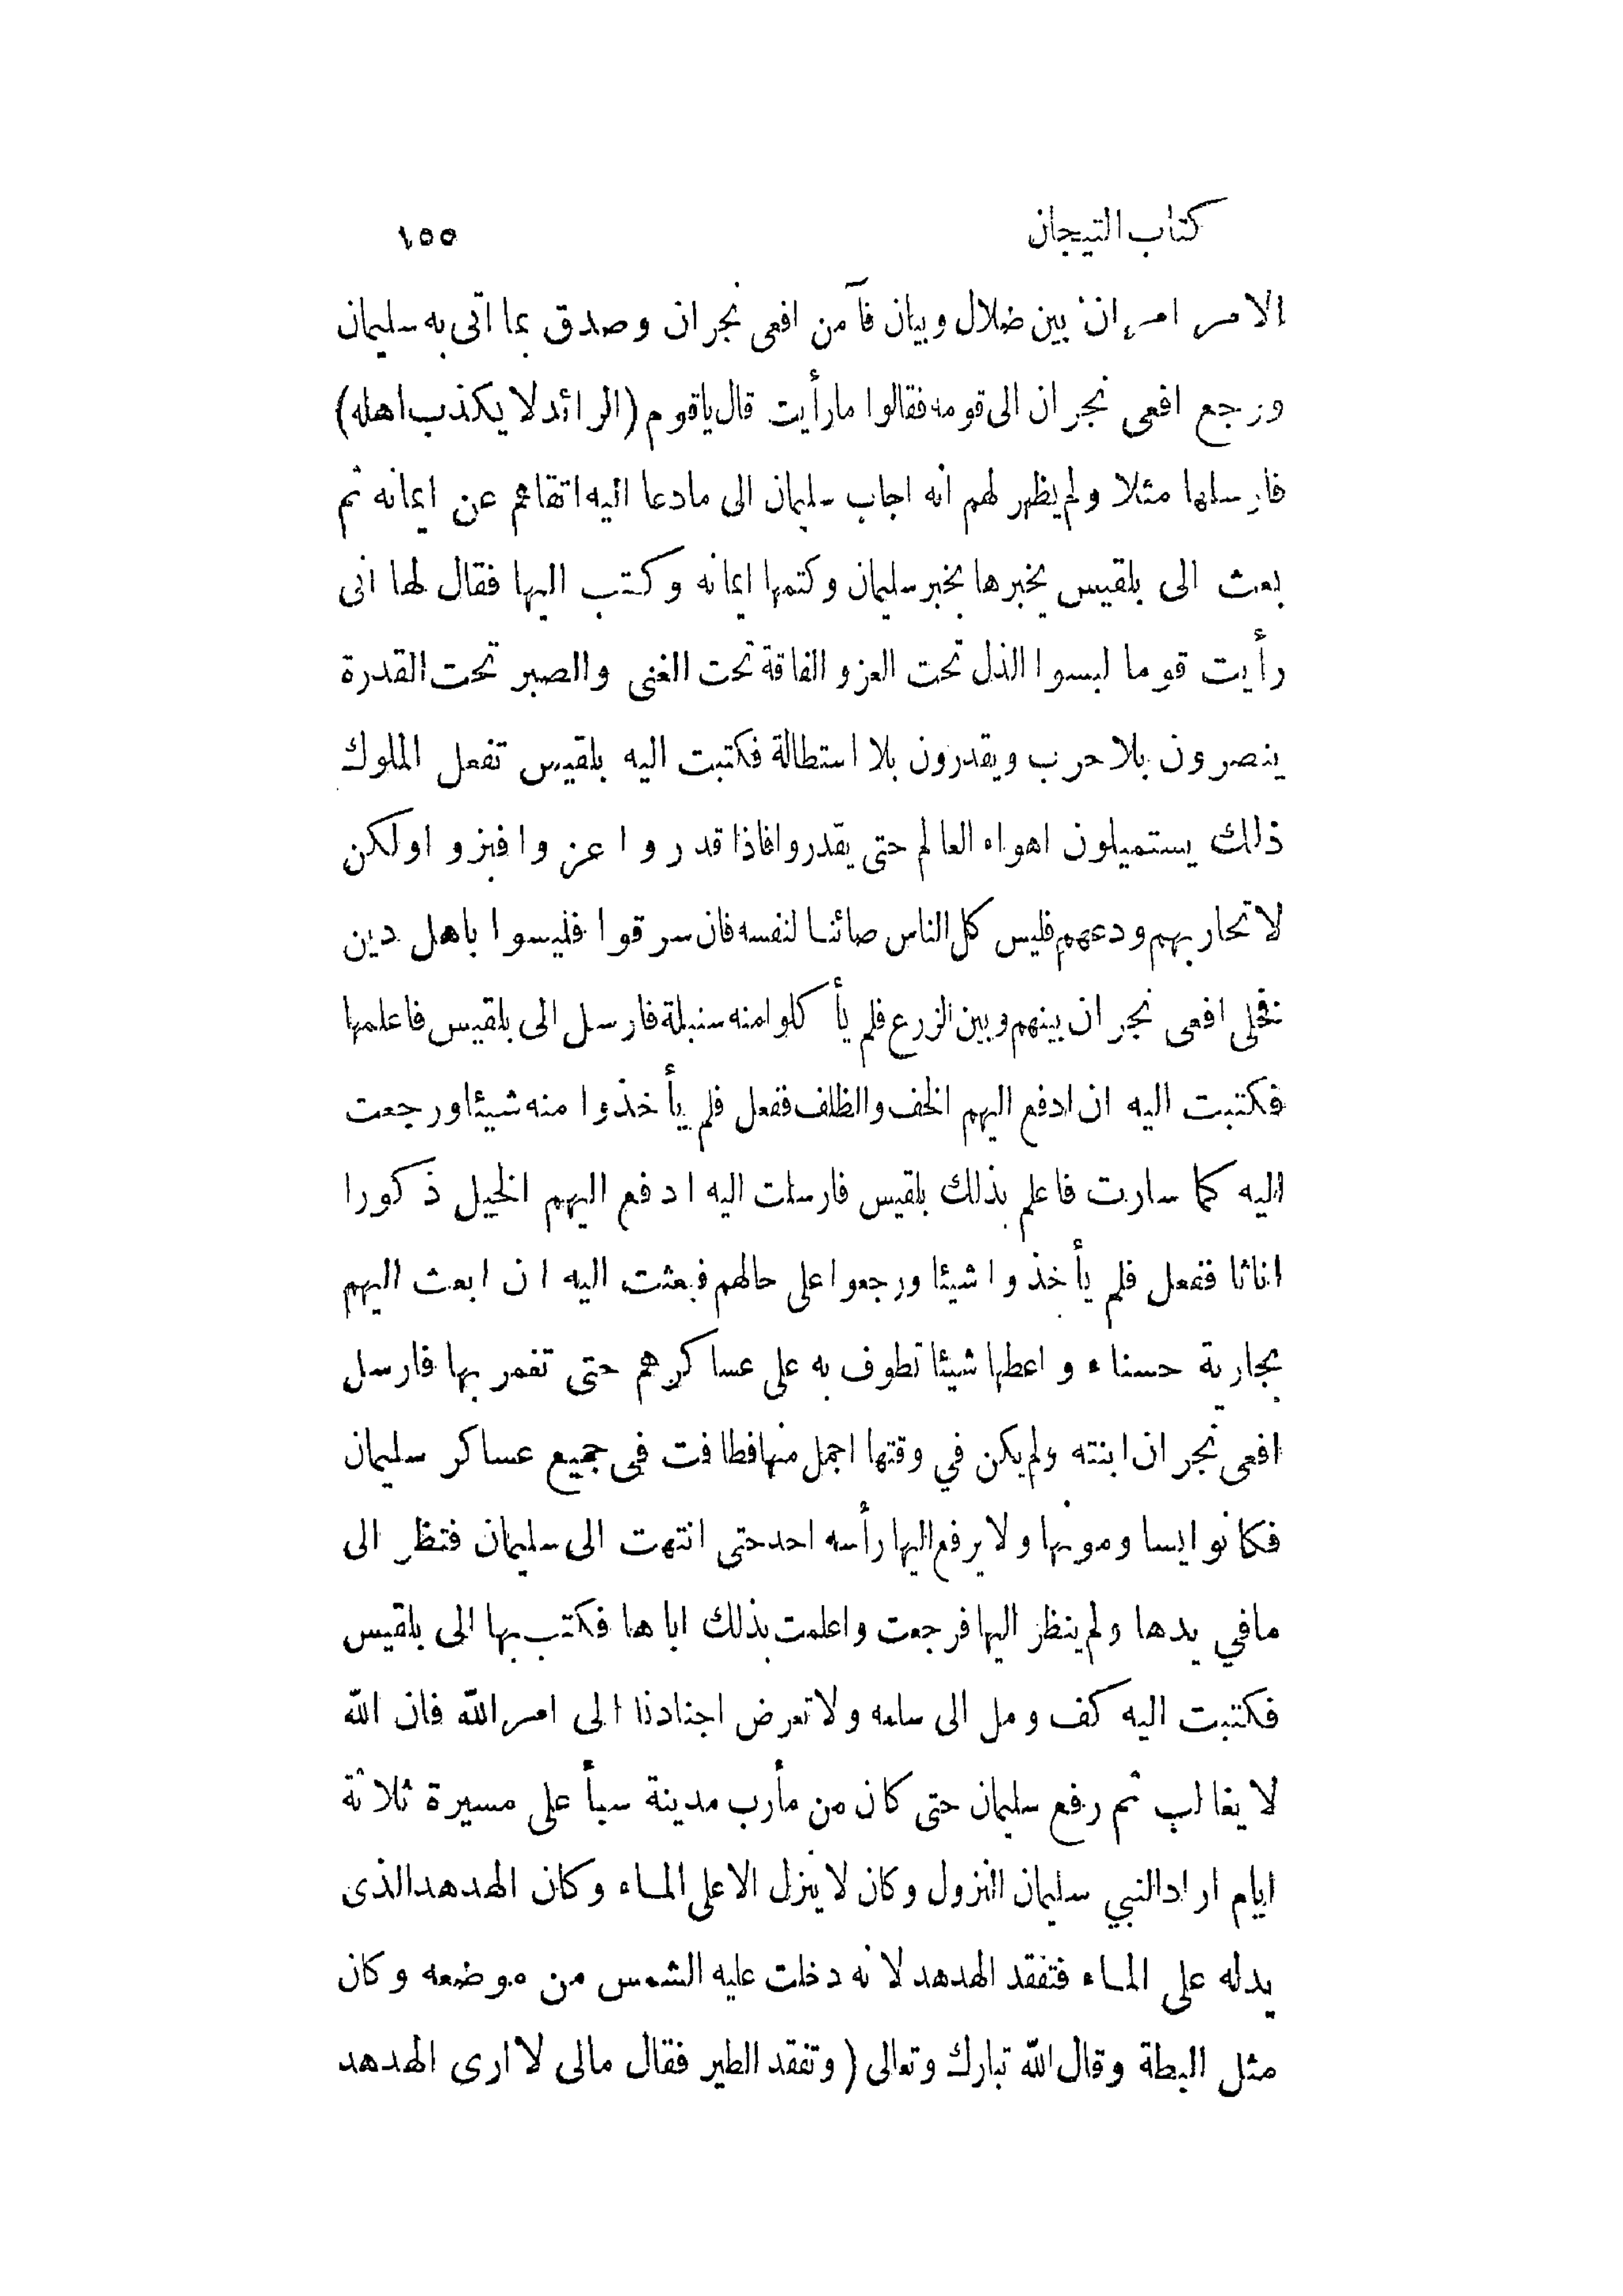 كتاب التيجان ١٥٥
الامر امران بين ضلال وبيان فآمن افعى نجران وصدق بما اتى به سليمان
ورجع افعى نجران الى قومه فقالوا ما رأيت قال يا قوم (الرائد لا يكذب اهله)
فارسلها مثلا ولم يظهر لهم انه اجاب سليمان الى ما دعا اليه اتقاهم عن ايمانه ثم
بعث الى بلقيس يخبرها بخبر سليمان وكتمها ايمانه وكتب اليها فقال لها انى
رأيت قوما لبسوا الذل تحت العز والفاقة تحت الغنى والصبر تحت القدرة
ينصرون بلا حرب ويقدرون بلا استطالة فكتبت اليه بلقيس تفعل الملوك
ذلك يستميلون اهواء العالم حتى يقدروا فاذا قدروا عزوا فبزوا ولكن
لا تحاربهم ودعهم فليس كل الناس صائنا لنفسه فان سرقوا فليسوا باهل دين
فخلى افعى نجران بينهم وبين الزرع فلم يأكلوا منه سنبلة فارسل الى بلقيس فاعلمها
فكتبت اليه ان ادفع اليهم الخف والظلف ففعل فلم يأخذوا منه شيئا ورجعت
اليه كما سارت فاعلم بذلك بلقيس فارسلت اليه ادفع اليهم الخيل ذكورا
اناثا ففعل فلم يأخذوا شيئا ورجعوا على حالهم فبعثت اليه ان ابعث اليهم
بجارية حسناء واعطها شيئا تطوف به على عساكرهم حتى تغمر بها فارسل
افعى نجران ابنته ولم يكن في وقتها اجمل منها فطافت فى جميع عساكر سليمان
فكانوا يساومونها ولا يرفع اليها رأسه احد حتى انتهت الى سليمان فنظر الى
ما في يدها ولم ينظر اليها فرجعت واعلمت بذلك اباها فكتب بها الى بلقيس
فكتبت اليه كف ومل الى سلمه ولا تعرض اجنادنا الى امر الله فان الله
لا يغالب ثم رفع سليمان حتى كان من مأرب مدينة سبأ على مسيرة ثلاثة
ايام اراد النبي سليمان النزول وكان لا ينزل الا على الماء وكان الهدهد الذى
يدله على الماء فتفقد الهدهد لانه دخلت عليه الشمس من موضعه وكان
مثل البطة وقال الله تبارك وتعالى (وتفقد الطير فقال مالى لا ارى الهدهد